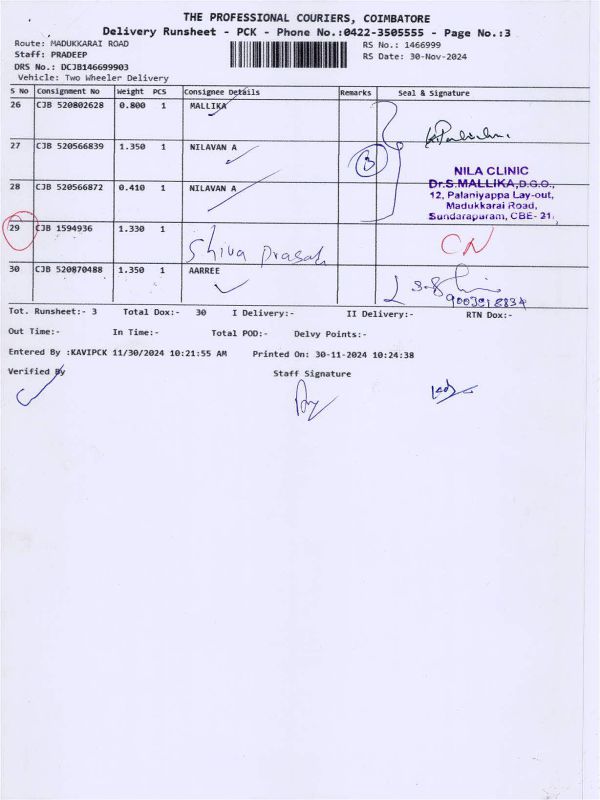 THE PROFESSIONAL COURIERS, COIMBATORE
Delivery Runsheet - PCK - Phone No.:0422-3505555 - Page No.:3
Route: MADUKKARAI ROAD
RS No.: 1466999
Staff: PRADEEP
RS Date: 30-Nov-2024
DRS No.: DCJB146699903
Vehicle: Two Wheeler Delivery
S No Consignment No Weight PCS Consignee Details Remarks Seal & Signature
26 CJB 520802628 0.800 1 MALLIKA
27 CJB 520566839 1.350 1 NILAVAN A
3
28 CJB 520566872 0.410 1 NILAVAN A
NILA CLINIC
Dr.S.MALLIKA,D.G.O.,
12, Palaniyappa Lay-out,
Madukkarai Road,
Sundarapuram, CBE- 21.
29 CJB 1594936 1.330 1 Shiva Prasah CN
30 CJB 520870488 1.350 1 AARREE
9003918834
Tot. Runsheet:- 3 Total Dox:- 30 I Delivery:- II Delivery:- RTN Dox:-
Out Time:- In Time:- Total POD:- Delvy Points:-
Entered By :KAVIPCK 11/30/2024 10:21:55 AM Printed On: 30-11-2024 10:24:38
Verified By Staff Signature